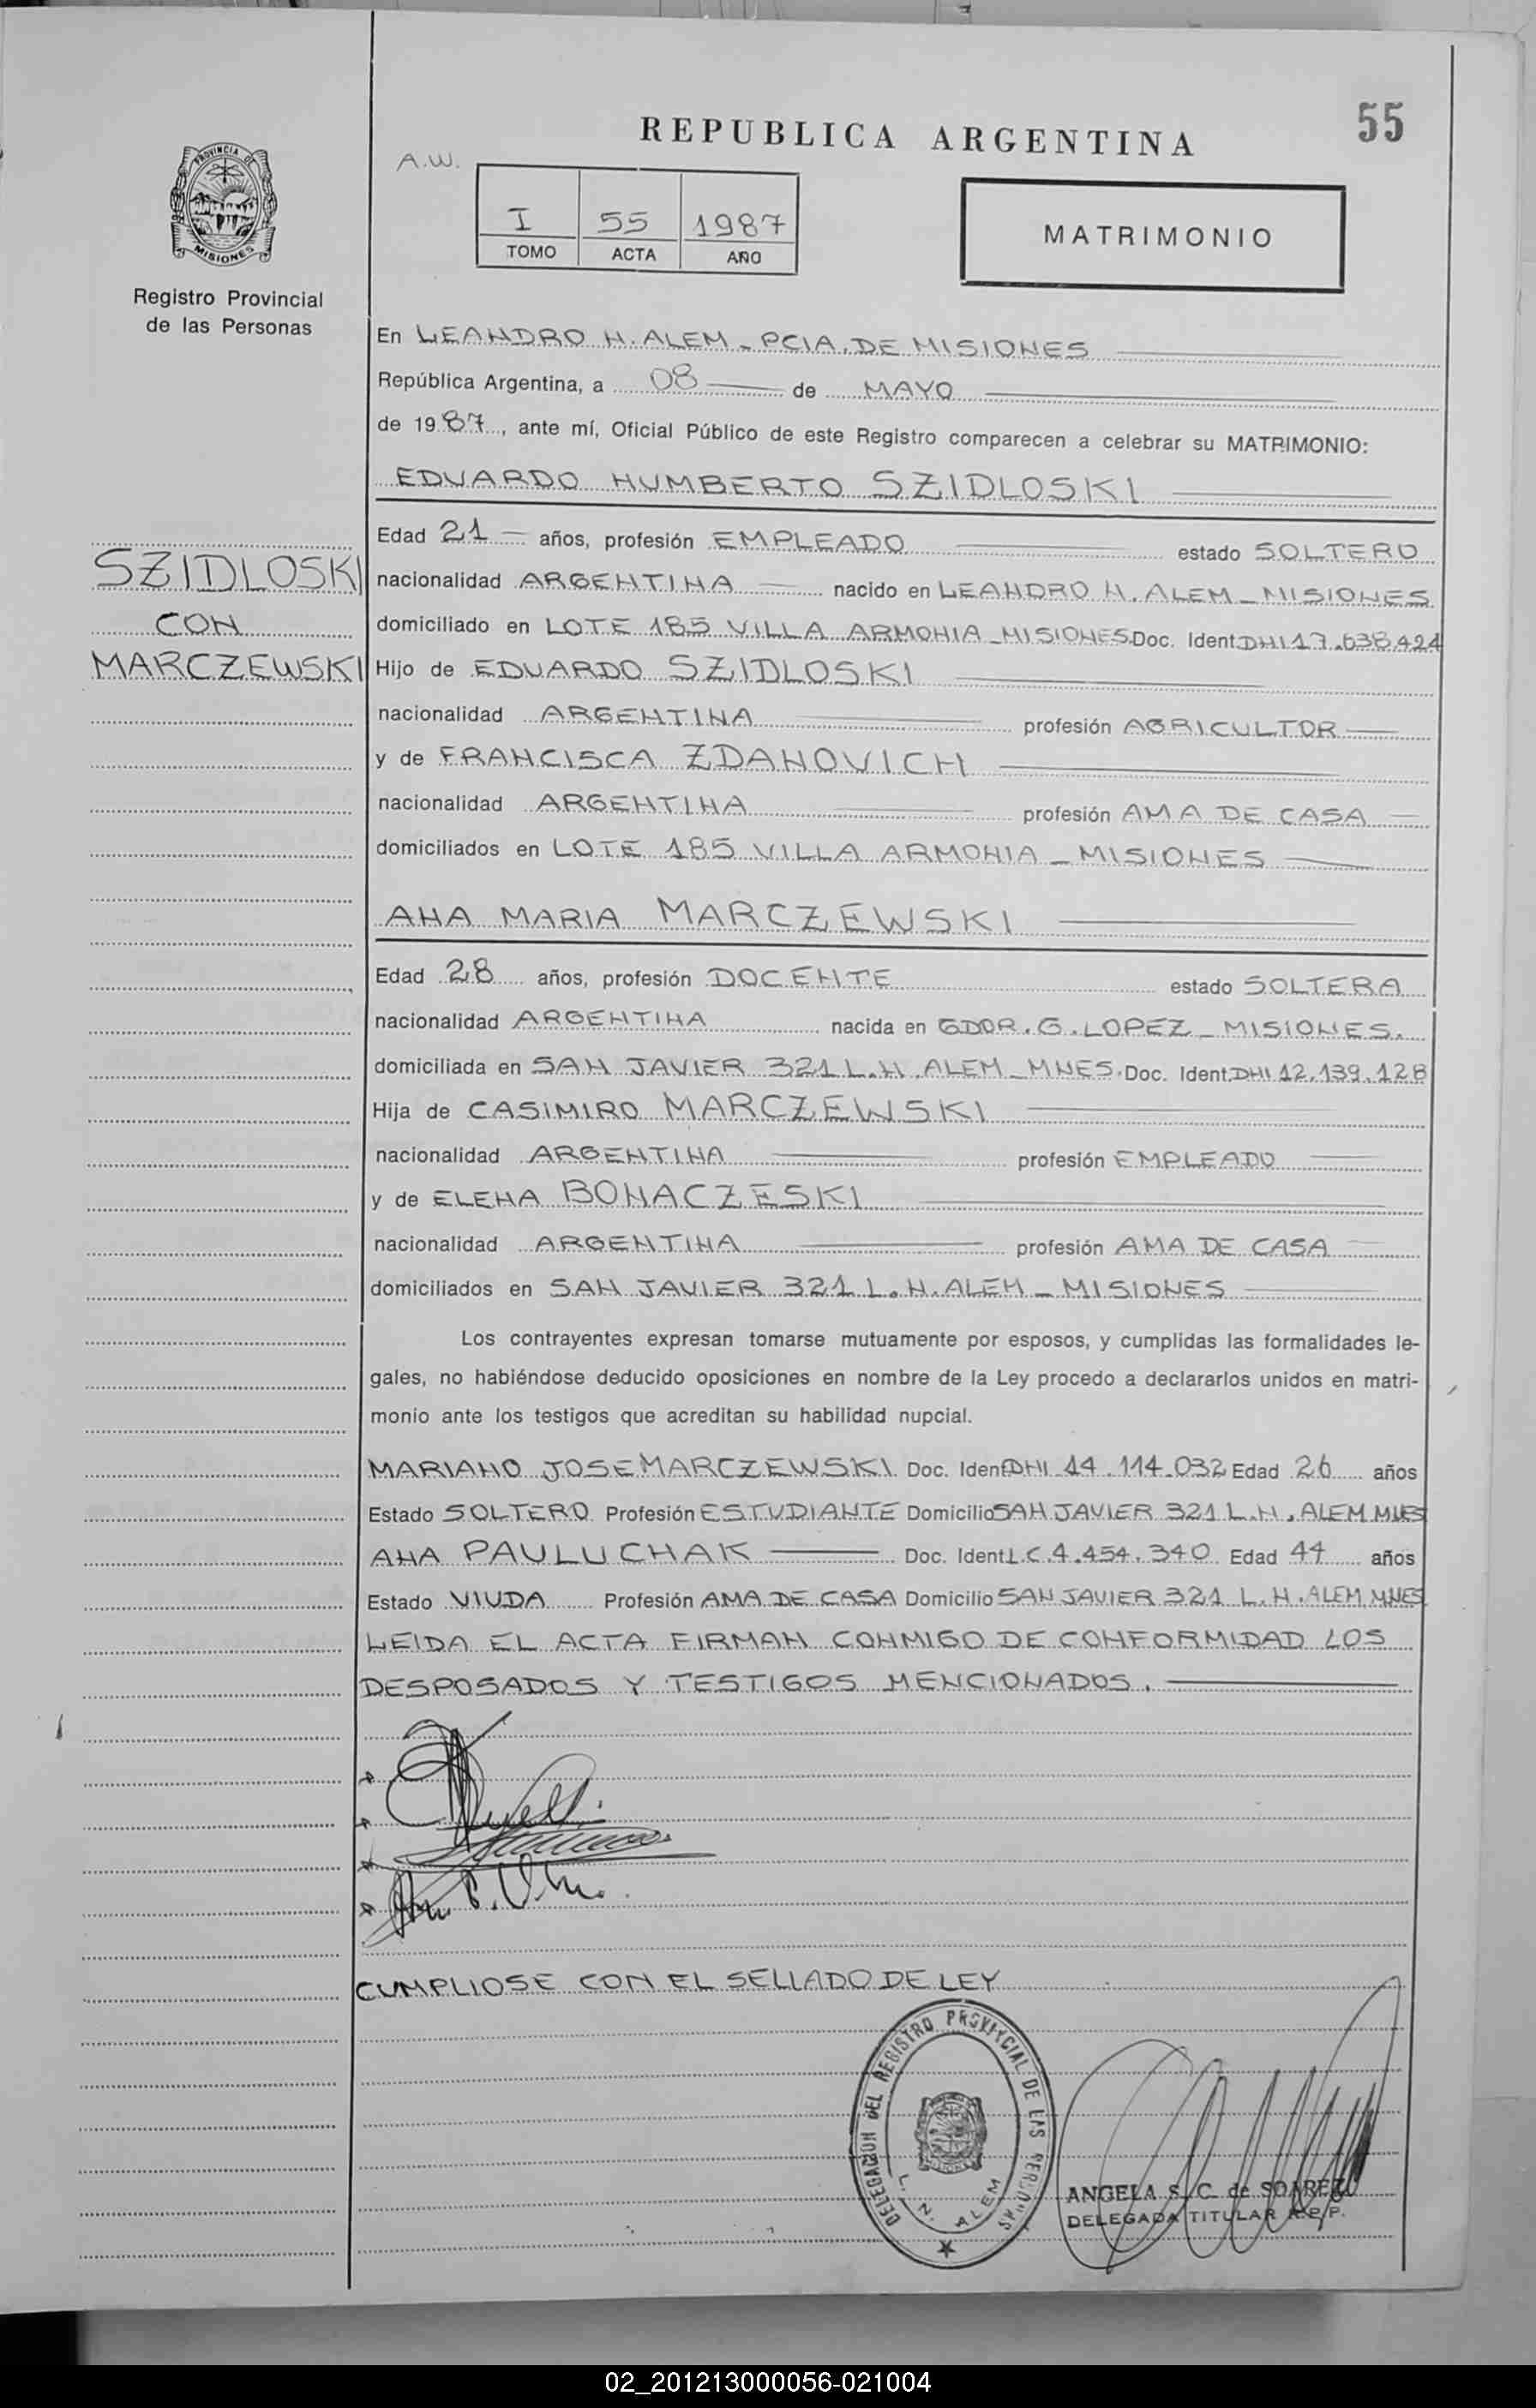 55
REPUBLICA ARGENTINA
A.W.
I 55 1987
TOMO ACTA AÑO
MATRIMONIO
PROVINCIA DE
MISIONES
Registro Provincial
de las Personas
En LEANDRO N. ALEM - PCIA. DE MISIONES
República Argentina, a 08 de MAYO
de 1987, ante mí, Oficial Público de este Registro comparecen a celebrar su MATRIMONIO:
EDUARDO HUMBERTO SZIDLOSKI
SZIDLOSKI
CON
MARCZEWSKI
Edad 21 años, profesión EMPLEADO estado SOLTERO
nacionalidad ARGENTINA nacido en LEANDRO N. ALEM - MISIONES
domiciliado en LOTE 185 VILLA ARMONIA - MISIONES Doc. Ident. DNI 17.638.424
Hijo de EDUARDO SZIDLOSKI
nacionalidad ARGENTINA profesión AGRICULTOR
y de FRANCISCA ZDANOVICH
nacionalidad ARGENTINA profesión AMA DE CASA
domiciliados en LOTE 185 VILLA ARMONIA - MISIONES
ANA MARIA MARCZEWSKI
Edad 28 años, profesión DOCENTE estado SOLTERA
nacionalidad ARGENTINA nacida en GDOR. G. LOPEZ - MISIONES.
domiciliada en SAN JAVIER 321 L.N. ALEM - MNES. Doc. Ident. DNI 12.139.128
Hija de CASIMIRO MARCZEWSKI
nacionalidad ARGENTINA profesión EMPLEADO
y de ELENA BONACZESKI
nacionalidad ARGENTINA profesión AMA DE CASA
domiciliados en SAN JAVIER 321 L.N. ALEM - MISIONES
Los contrayentes expresan tomarse mutuamente por esposos, y cumplidas las formalidades le-
gales, no habiéndose deducido oposiciones en nombre de la Ley procedo a declararlos unidos en matri-
monio ante los testigos que acreditan su habilidad nupcial.
MARIANO JOSE MARCZEWSKI Doc. Ident. DNI 14.114.032 Edad 26 años
Estado SOLTERO Profesión ESTUDIANTE Domicilio SAN JAVIER 321 L.N. ALEM MNES
ANA PAULUCHAK Doc. Ident. L.C. 4.454.340 Edad 44 años
Estado VIUDA Profesión AMA DE CASA Domicilio SAN JAVIER 321 L.N. ALEM MNES
LEIDA EL ACTA FIRMAN CONMIGO DE CONFORMIDAD LOS
DESPOSADOS Y TESTIGOS MENCIONADOS.
CUMPLIOSE CON EL SELLADO DE LEY
DELEGACION DEL REGISTRO PROVINCIAL DE LAS PERSONAS
L. N. ALEM
ANGELA S. C. de SOAREZ
DELEGADA TITULAR R.P.P.
02_201213000056-021004